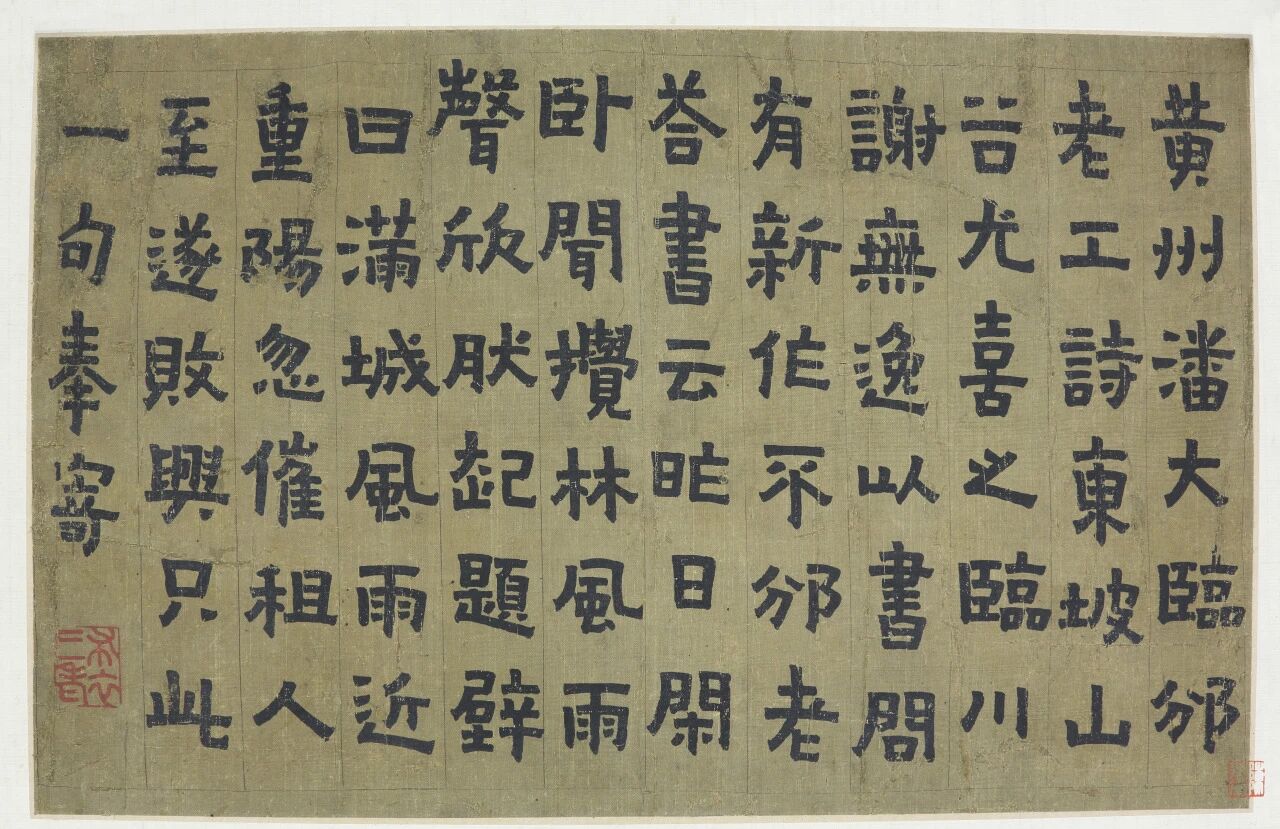 黄州潘大臨邠
老工詩東坡山
谷尤喜之臨川
謝無逸以書問
有新作不邠老
荅書云昨日閑
卧聞攪林風雨
聲欣肰起題壁
曰滿城風雨近
重陽忽催租人
至遂敗興只此
一句奉寄